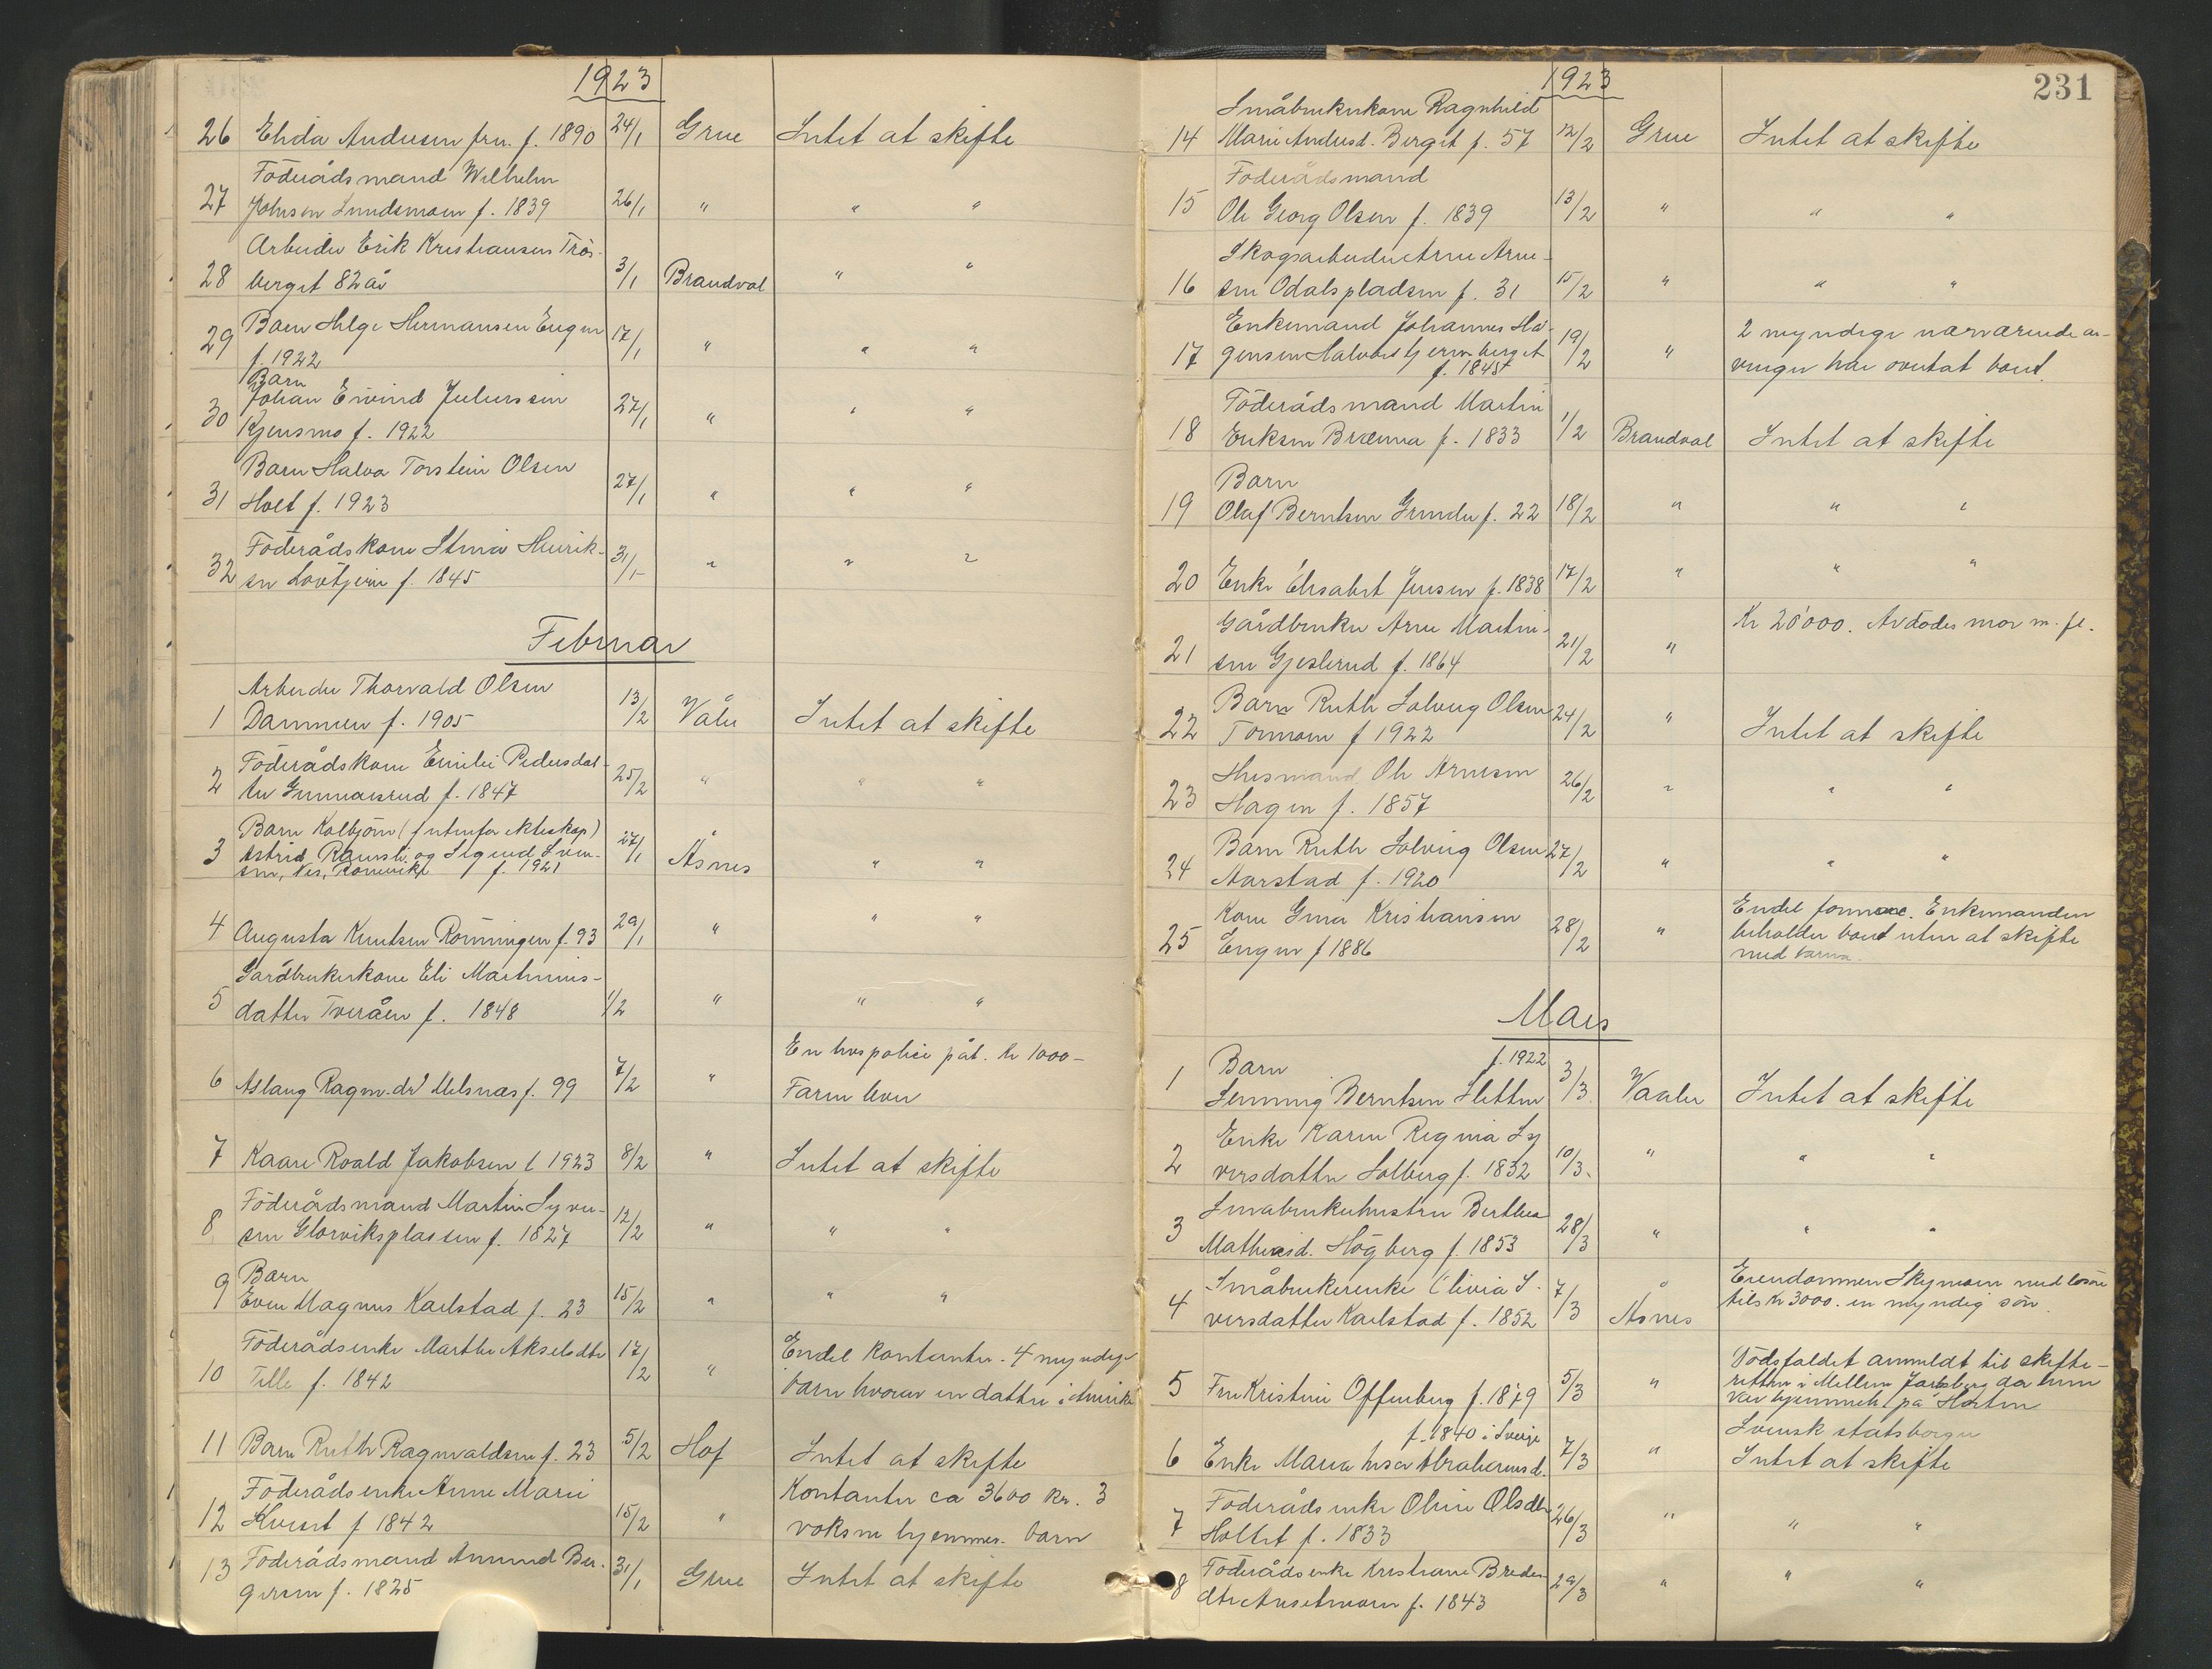 1923
26 Elida Andersen fru. f. 1890 24/1 Grue Intet at skifte
Föderådsmand Wilhelm
27 Johnsen Lundsmoen f. 1839 26/1 " " "
Arbeider Erik Kristiansen Trös-
28 berget 82 år 3/1 Brandval " "
29 Barn Helge Hermansen Engen 17/1 " " "
f. 1922
Barn
Johan Eivind Juliussen
30 Kjensmo f. 1922 27/1 " " "
Barn Halva Torstein Olsen
31 Holt f. 1923 27/1 " " "
Föderådskone Stina Henrik-
32 sen Lövtjern f. 1845 31/1 " " "
Februar
Arbeider Thorvald Olsen
1 Dammen f. 1905 13/2 Våler Intet at skifte
Föderådskone Emilie Pedersdat-
2 ter Gunnarsrud f. 1847 25/2 " " "
Barn Kolbjörn (f utenfor ekteskap)
3 Astrid og Sigurd Sven- 27/1 Åsnes " "
sen, f. 1921
4 Augusta Knutsen Rönningen f. 93 29/1 " " "
Gårdbrukerkone Eli Martinius-
5 datter Tveråen f. 1848 1/2 " " "
En livspolice pål. kr 1000-
6 Aslaug Ragnv.dr Melsnæs f. 99 7/2 " Faren lever
7 Kaare Roald Jakobsen f 1923 8/2 " Intet at skifte
Föderådsmand Martin Syver-
8 sen Glorviksplassen f. 1827 12/2 " " "
Barn
9 Even Magnus Karlstad f. 23 15/2 " " "
Föderådsenke Marthe Akselsdtr 17/2 Endel kontanter. 4 myndige
10 Telle f. 1842 " barn hvorav en datter i Amerika
11 Barn Ruth Ragnvaldsen f. 23 5/2 Hof Intet at skifte
Föderådsenke Anne Marie Kontanter ca 3600 kr. 3
12 Kvest f 1842 15/2 " voksne hjemmev. barn
13 Föderådsmand Amund Ber- 31/1 Grue Intet at skifte
gersen f. 1825
1923
231
Småbrukerkone Ragnhild
14 Marie Andersd. Berget f. 57 12/2 Grue Intet at skifte
Föderådsmand
15 Ole Georg Olsen f. 1839 13/2 " " "
Skogsarbeider Arne Arne-
16 sen Odalspladsen f. 31 15/2 " " "
Enkemand Johannes Ha- 2 myndige nærværende ar-
17 gensen berget 19/2 " vinger har overtat boet.
f. 1845
Föderådsmand Martin
18 Eriksen Brænna f. 1833 1/2 Brandval Intet at skifte
Barn
19 Olaf Berntsen Grinder f. 22 18/2 " " "
20 Enke Elisabet Jensen f. 1838 17/2 " " "
Gårdbruker Arne Martin- Kr 20'000. Avdødes mor m. fl.
21 sen Gjeslerud f. 1864 21/2 "
Barn Ruth Solveig Olsen
22 Tormoen f 1922 24/2 " Intet at skifte
Husmand Ole Arnesen
23 Hagen f. 1857 26/2 " " "
Barn Ruth Solveig Olsen
24 Aarstad f. 1920 27/2 " " "
Kone Gina Kristiansen Endel formue. Enkemanden
25 Enger f 1886 28/2 " beholder boet uten at skifte
med barna.
Mars
Barn f. 1922
1 Berntsen Sletten 3/3 Vaaler Intet at skifte
Enke Karen Regina Sy
2 versdatter Solberg f. 1832 10/3. " " "
Småbrukerhustru Berthea
3 Mathiasd. Högberg f. 1853 28/3 " " "
Småbrukerenke Olivia S. Eiendommen Skymoen med lösöre
4 versdatter Karlstad f. 1852 7/3 Åsnes tils kr 3000. en myndig sön.
Dödsfaldet anmeldt til skifte-
5 Fru Kristine Offenberg f. 1879 5/3 " retten i Mellem Jarlsberg da hun
var hjemmeh. på Horten
f. 1840 i Sverige Svensk statsborger
6 Enke Maria Lisa Abrahamsd. 7/3 " Intet at skifte
Föderådsenke Oline Olsdtr
7 Holtet f. 1833 26/3 " " "
Föderådsenke Kristiane Breder
8 dtr f. 1843 29/3 " " "